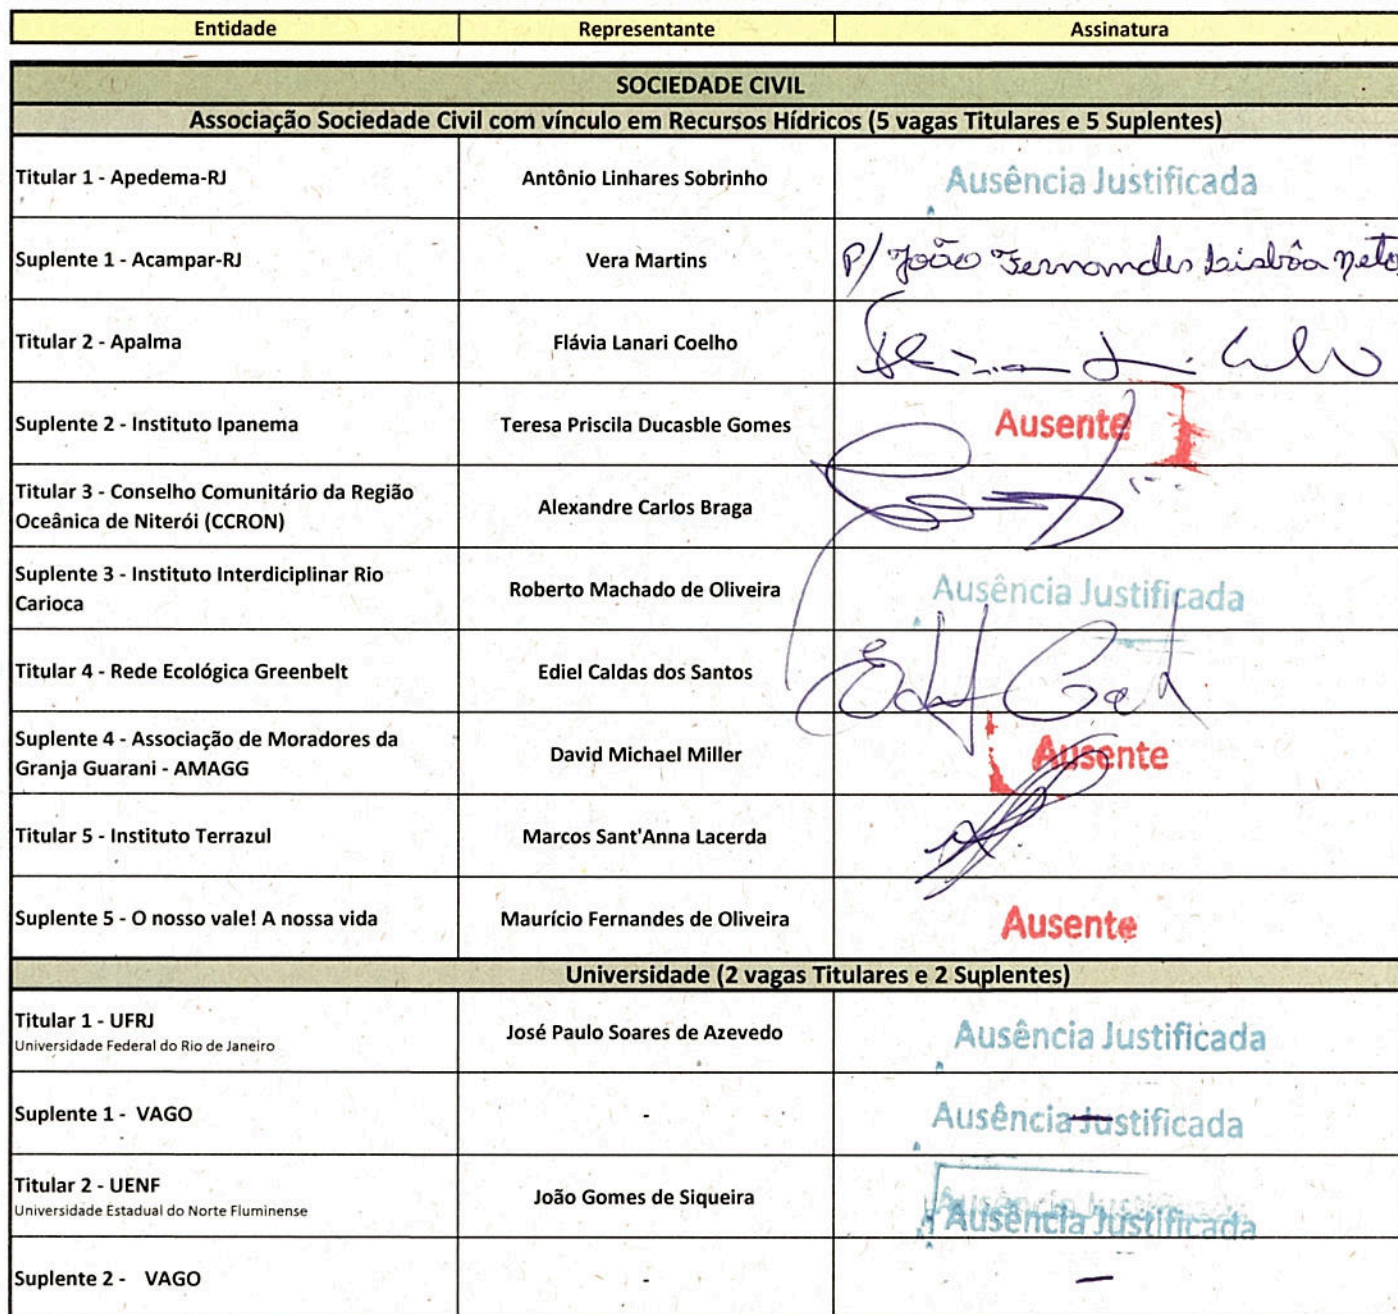 Entidade Representante Assinatura
SOCIEDADE CIVIL
Associação Sociedade Civil com vínculo em Recursos Hídricos (5 vagas Titulares e 5 Suplentes)
Titular 1 - Apedema-RJ Antônio Linhares Sobrinho Ausência Justificada
Suplente 1 - Acampar-RJ Vera Martins P/ João Fernandes Lisbôa Neto
Titular 2 - Apalma Flávia Lanari Coelho
Suplente 2 - Instituto Ipanema Teresa Priscila Ducasble Gomes Ausente
Titular 3 - Conselho Comunitário da Região
Oceânica de Niterói (CCRON) Alexandre Carlos Braga
Suplente 3 - Instituto Interdiciplinar Rio
Carioca Roberto Machado de Oliveira Ausência Justificada
Titular 4 - Rede Ecológica Greenbelt Ediel Caldas dos Santos
Suplente 4 - Associação de Moradores da
Granja Guarani - AMAGG David Michael Miller Ausente
Titular 5 - Instituto Terrazul Marcos Sant'Anna Lacerda
Suplente 5 - O nosso vale! A nossa vida Maurício Fernandes de Oliveira Ausente
Universidade (2 vagas Titulares e 2 Suplentes)
Titular 1 - UFRJ
Universidade Federal do Rio de Janeiro José Paulo Soares de Azevedo Ausência Justificada
Suplente 1 - VAGO - Ausência Justificada
Titular 2 - UENF
Universidade Estadual do Norte Fluminense João Gomes de Siqueira Ausência Justificada
Suplente 2 - VAGO - —